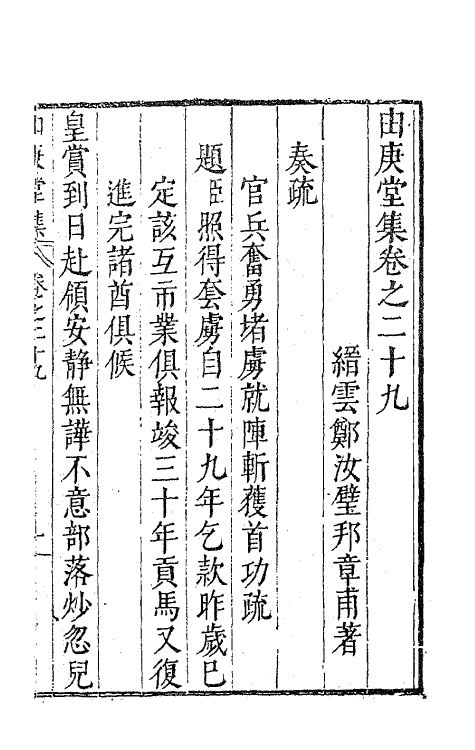 由庚堂集卷之二十九
縉雲鄭汝璧邦章甫著
奏疏
官兵奮勇堵虜就陣斬獲首功疏
題臣照得套虜自二十九年乞款昨歲巳
定該互市業俱報竣三十年貢馬又復
進完諸酋俱候
皇賞到日赴領安靜無譁不意部落炒忽兒
由庚堂集 卷之二十九